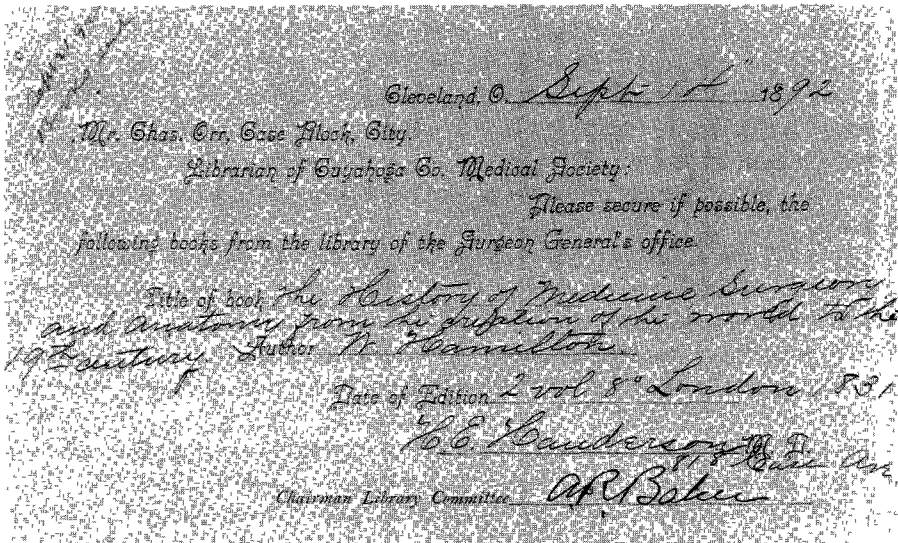 Cleveland, O. Sept 1st 1892
Mr. Chas. Orr, Case Block, City.
Librarian of Cuyahoga Co. Medical Society:
Please secure if possible, the
following books from the library of the Surgeon General's office.
Title of book The History of Medicine Surgery
and Anatomy from the creation of the world to the
19th century Author W Hamilton
Date of Edition 2 vol 8° London 1831
H.E. Handerson M D
Chairman Library Committee A.R. Baker